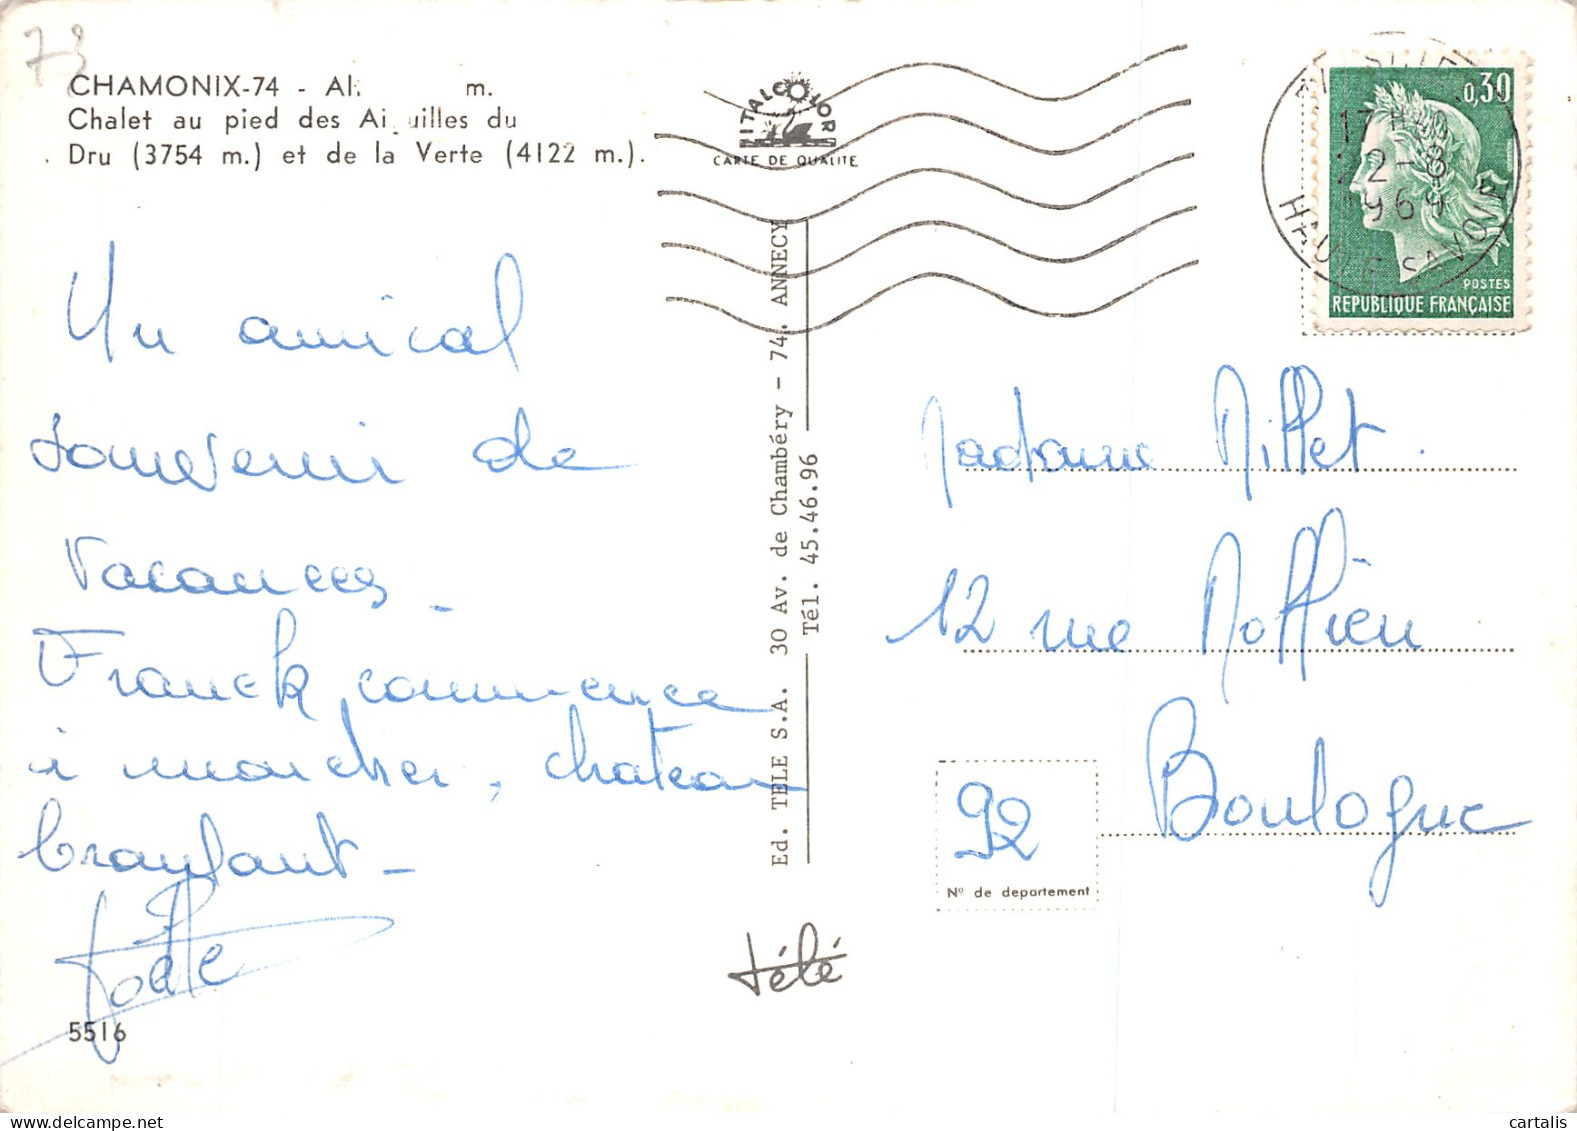 73
CHAMONIX-74 - Al. m.
Chalet au pied des Ai uilles du
Dru (3754 m.) et de la Verte (4122 m.).
ITALCOLOR
CARTE DE QUALITE
0,30
17 H
22-8
1969
HAUTE SAVOIE
POSTES
REPUBLIQUE FRANÇAISE
Un amical
souvenir de
vacances -
Franck commence
à marcher, chateau
branlant -
Ed. TELE S.A. 30 Av. de Chambéry - 74. ANNECY
Tél. 45.46.96
Madame Millet
12 rue
Boulogne
92
Nº de departement
télé
5516
delcampe.net
cartalis